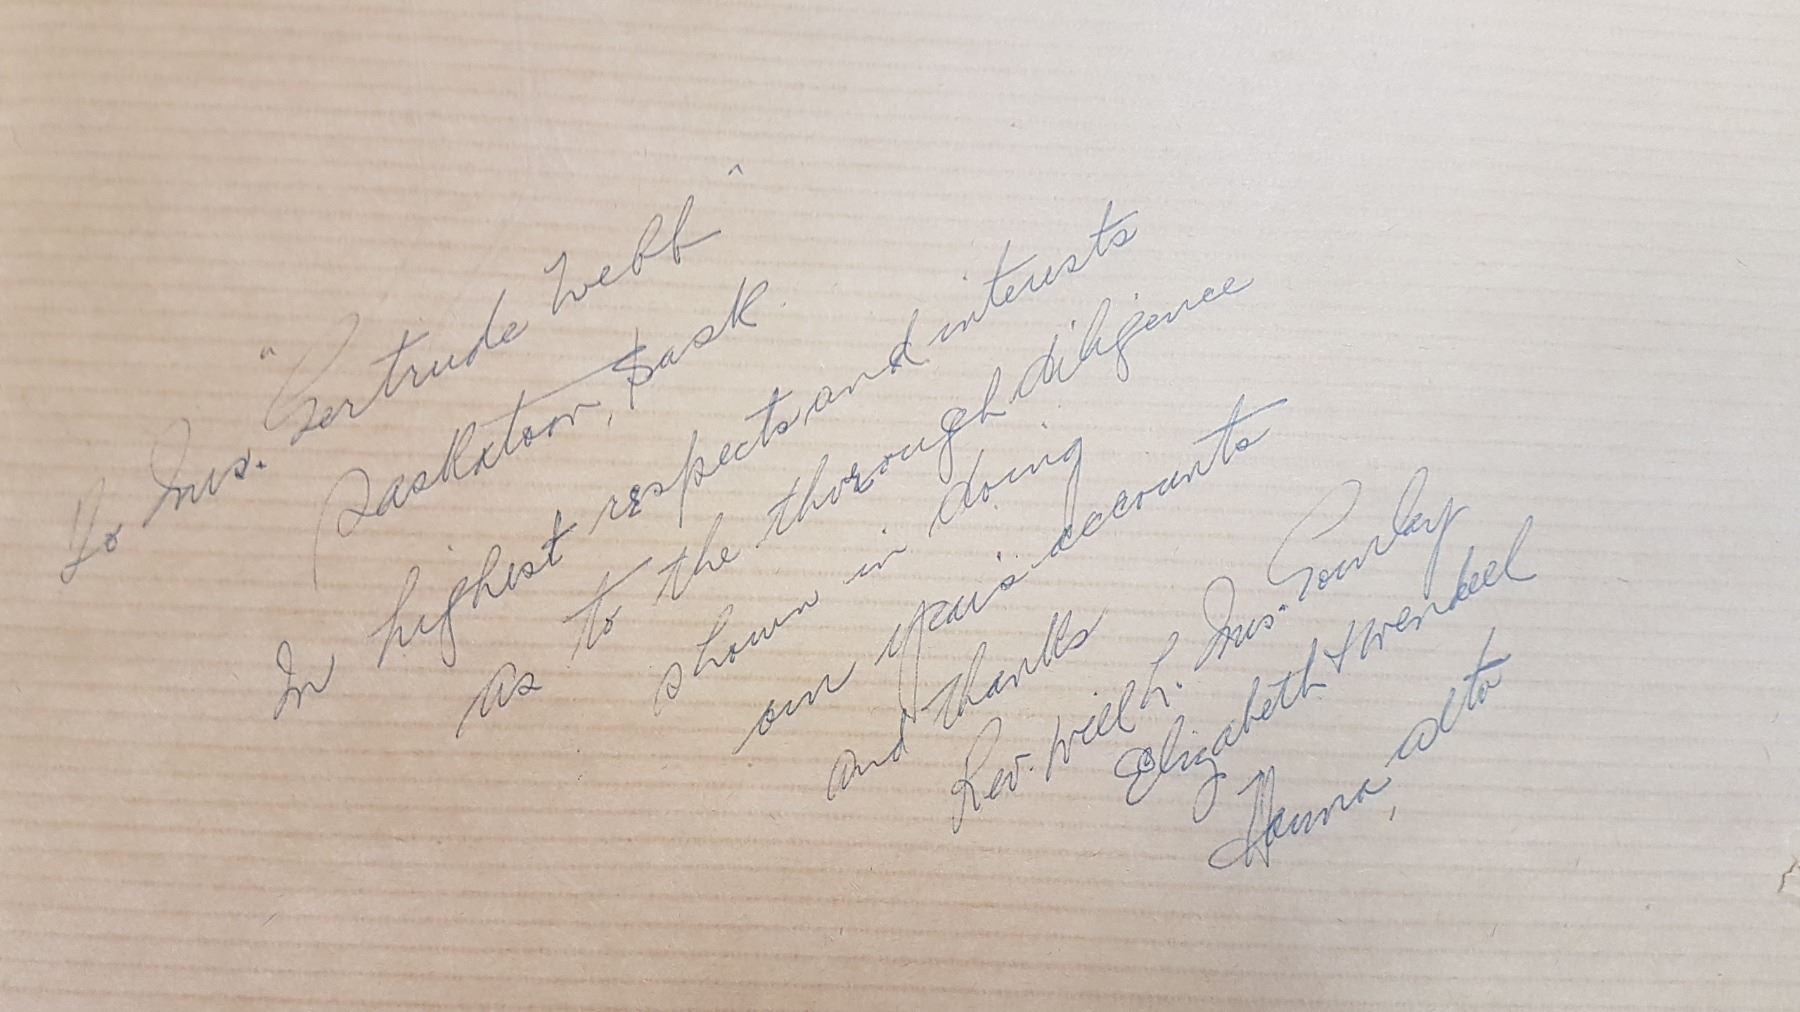 To Mrs. "Gertrude Webb"
Saskatoon, Sask.
In highest respects and interests
as to the thorough diligence
shown in doing
our year's accounts
and thanks
Rev. Will h. Mrs. Gourlay
Elizabeth + Wendell
Hanna, Alta